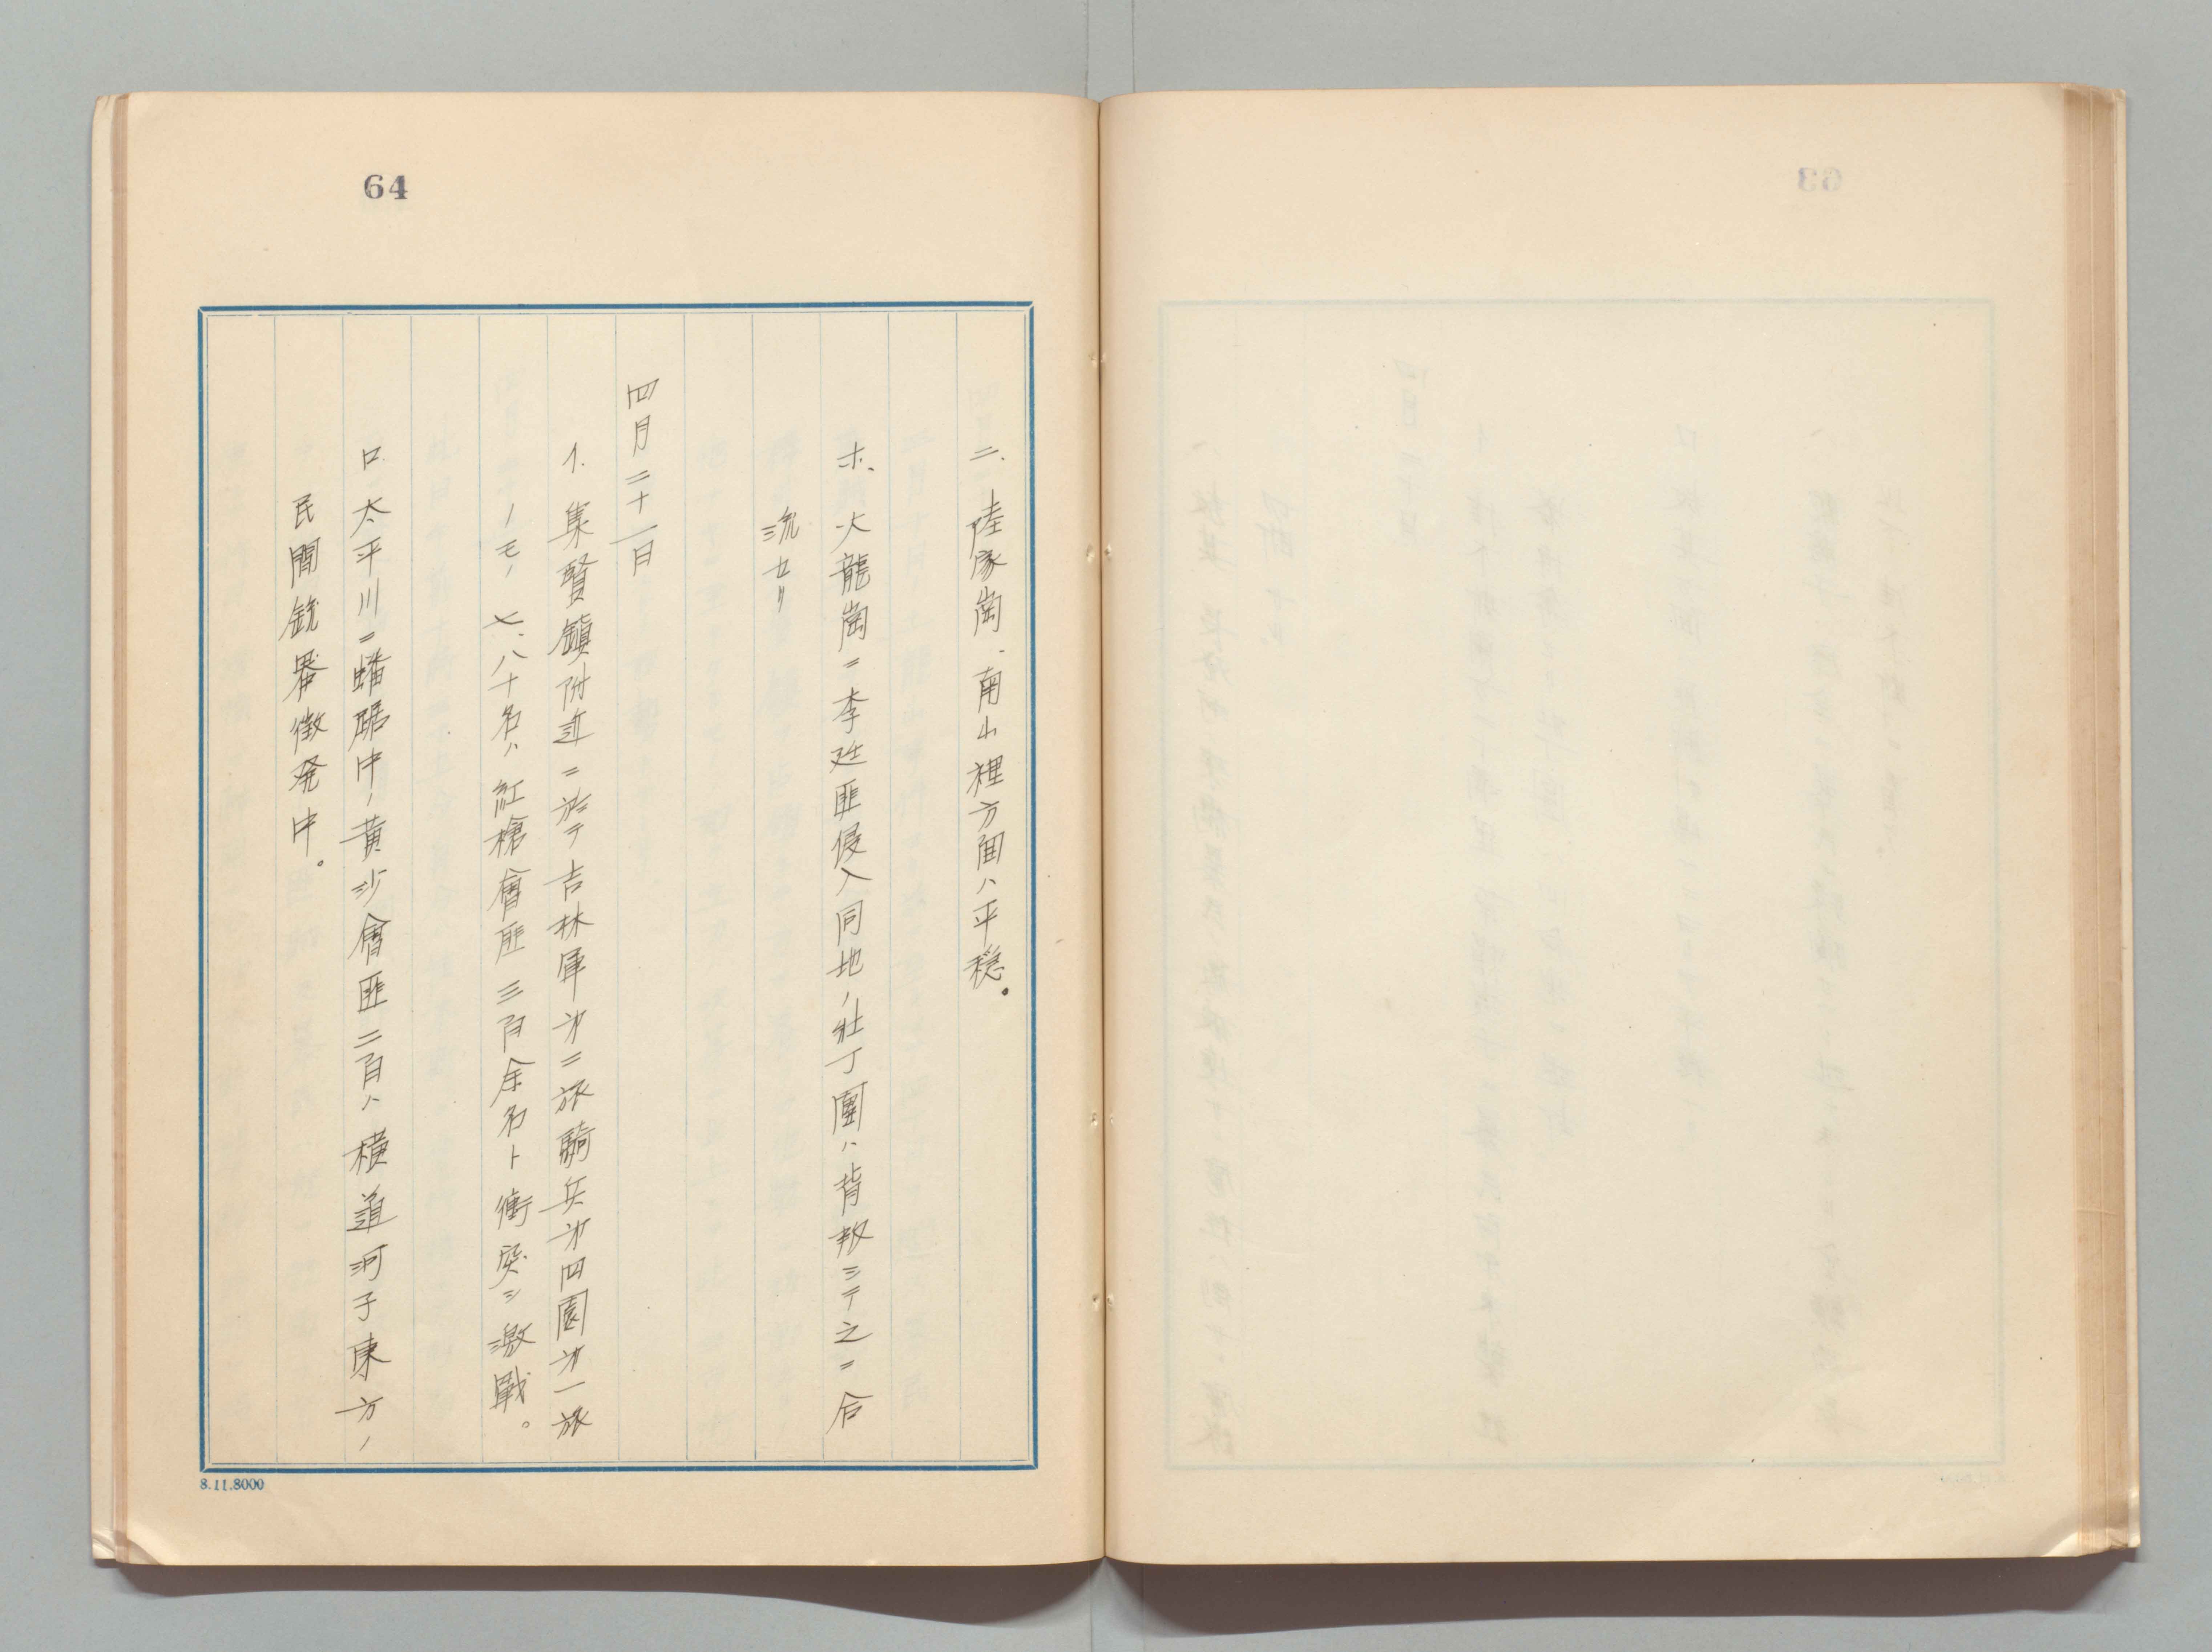 64
ニ、陸家崗、南山裡方面ハ平穏。
ホ、大龍崗ニ李廷匪侵入同地ノ壮丁團ハ背叛シテ之ニ合
流セリ
四月二十一日
イ、集賢鎮附近ニ於テ吉林軍第二旅騎兵第四團第一旅
ノモノ七、八十名ハ紅槍會匪三百余名ト衝突シ激戰。
ロ、太平川ニ蟠踞中ノ黄沙會匪二百ハ横道河子東方ノ
民間銃器徴発中。
8.11.8000
63